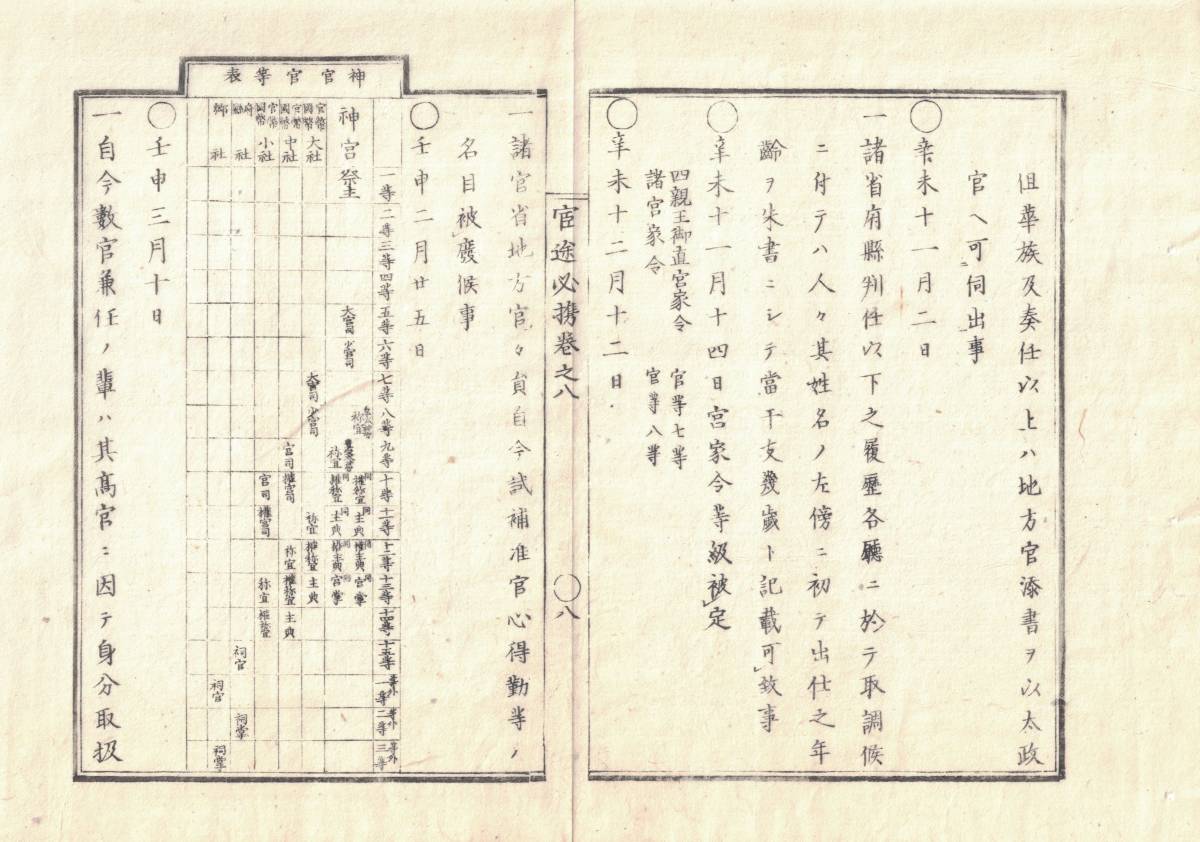 但華族及奏任以上ハ地方官添書ヲ以太政
官ヘ可伺出事
辛未十一月二日
一諸省府縣判任以下之履歷各廳ニ於テ取調候
ニ付テハ人々其姓名ノ左傍ニ初テ出仕之年
齡ヲ朱書ニシテ當干支幾歲ト記載可致事
辛未十一月十四日宮家令等級被定
四親王御直宮家令 官等七等
諸宮家令 官等八等
辛未十二月十二日
宦途必携卷之八 〇八
一諸官省地方官々員自今試補准官心得勤等ノ
名目被廢候事
壬申二月廿五日
神官官等表
一等 二等 三等 四等 五等 六等 七等 八等 九等 十等 十一等 十二等 十三等 十四等 十五等 等外一等 等外二等 等外三等
神宮祭主 大宮司 少宮司 祢宜 祢宜 權祢宜 權祢宜 主典 主典 權主典 權主典 宮掌 宮掌
官幣國幣大社 大宮司 少宮司 祢宜 權祢宜 主典
官幣國幣中社 宮司 權宮司 祢宜 權祢宜 主典
官幣國幣小社 宮司 權宮司 祢宜 權祢宜
府縣社 祠官 祠掌
鄉社 祠官 祠掌
壬申三月十日
一自今數官兼任ノ輩ハ其高官ニ因テ身分取扱